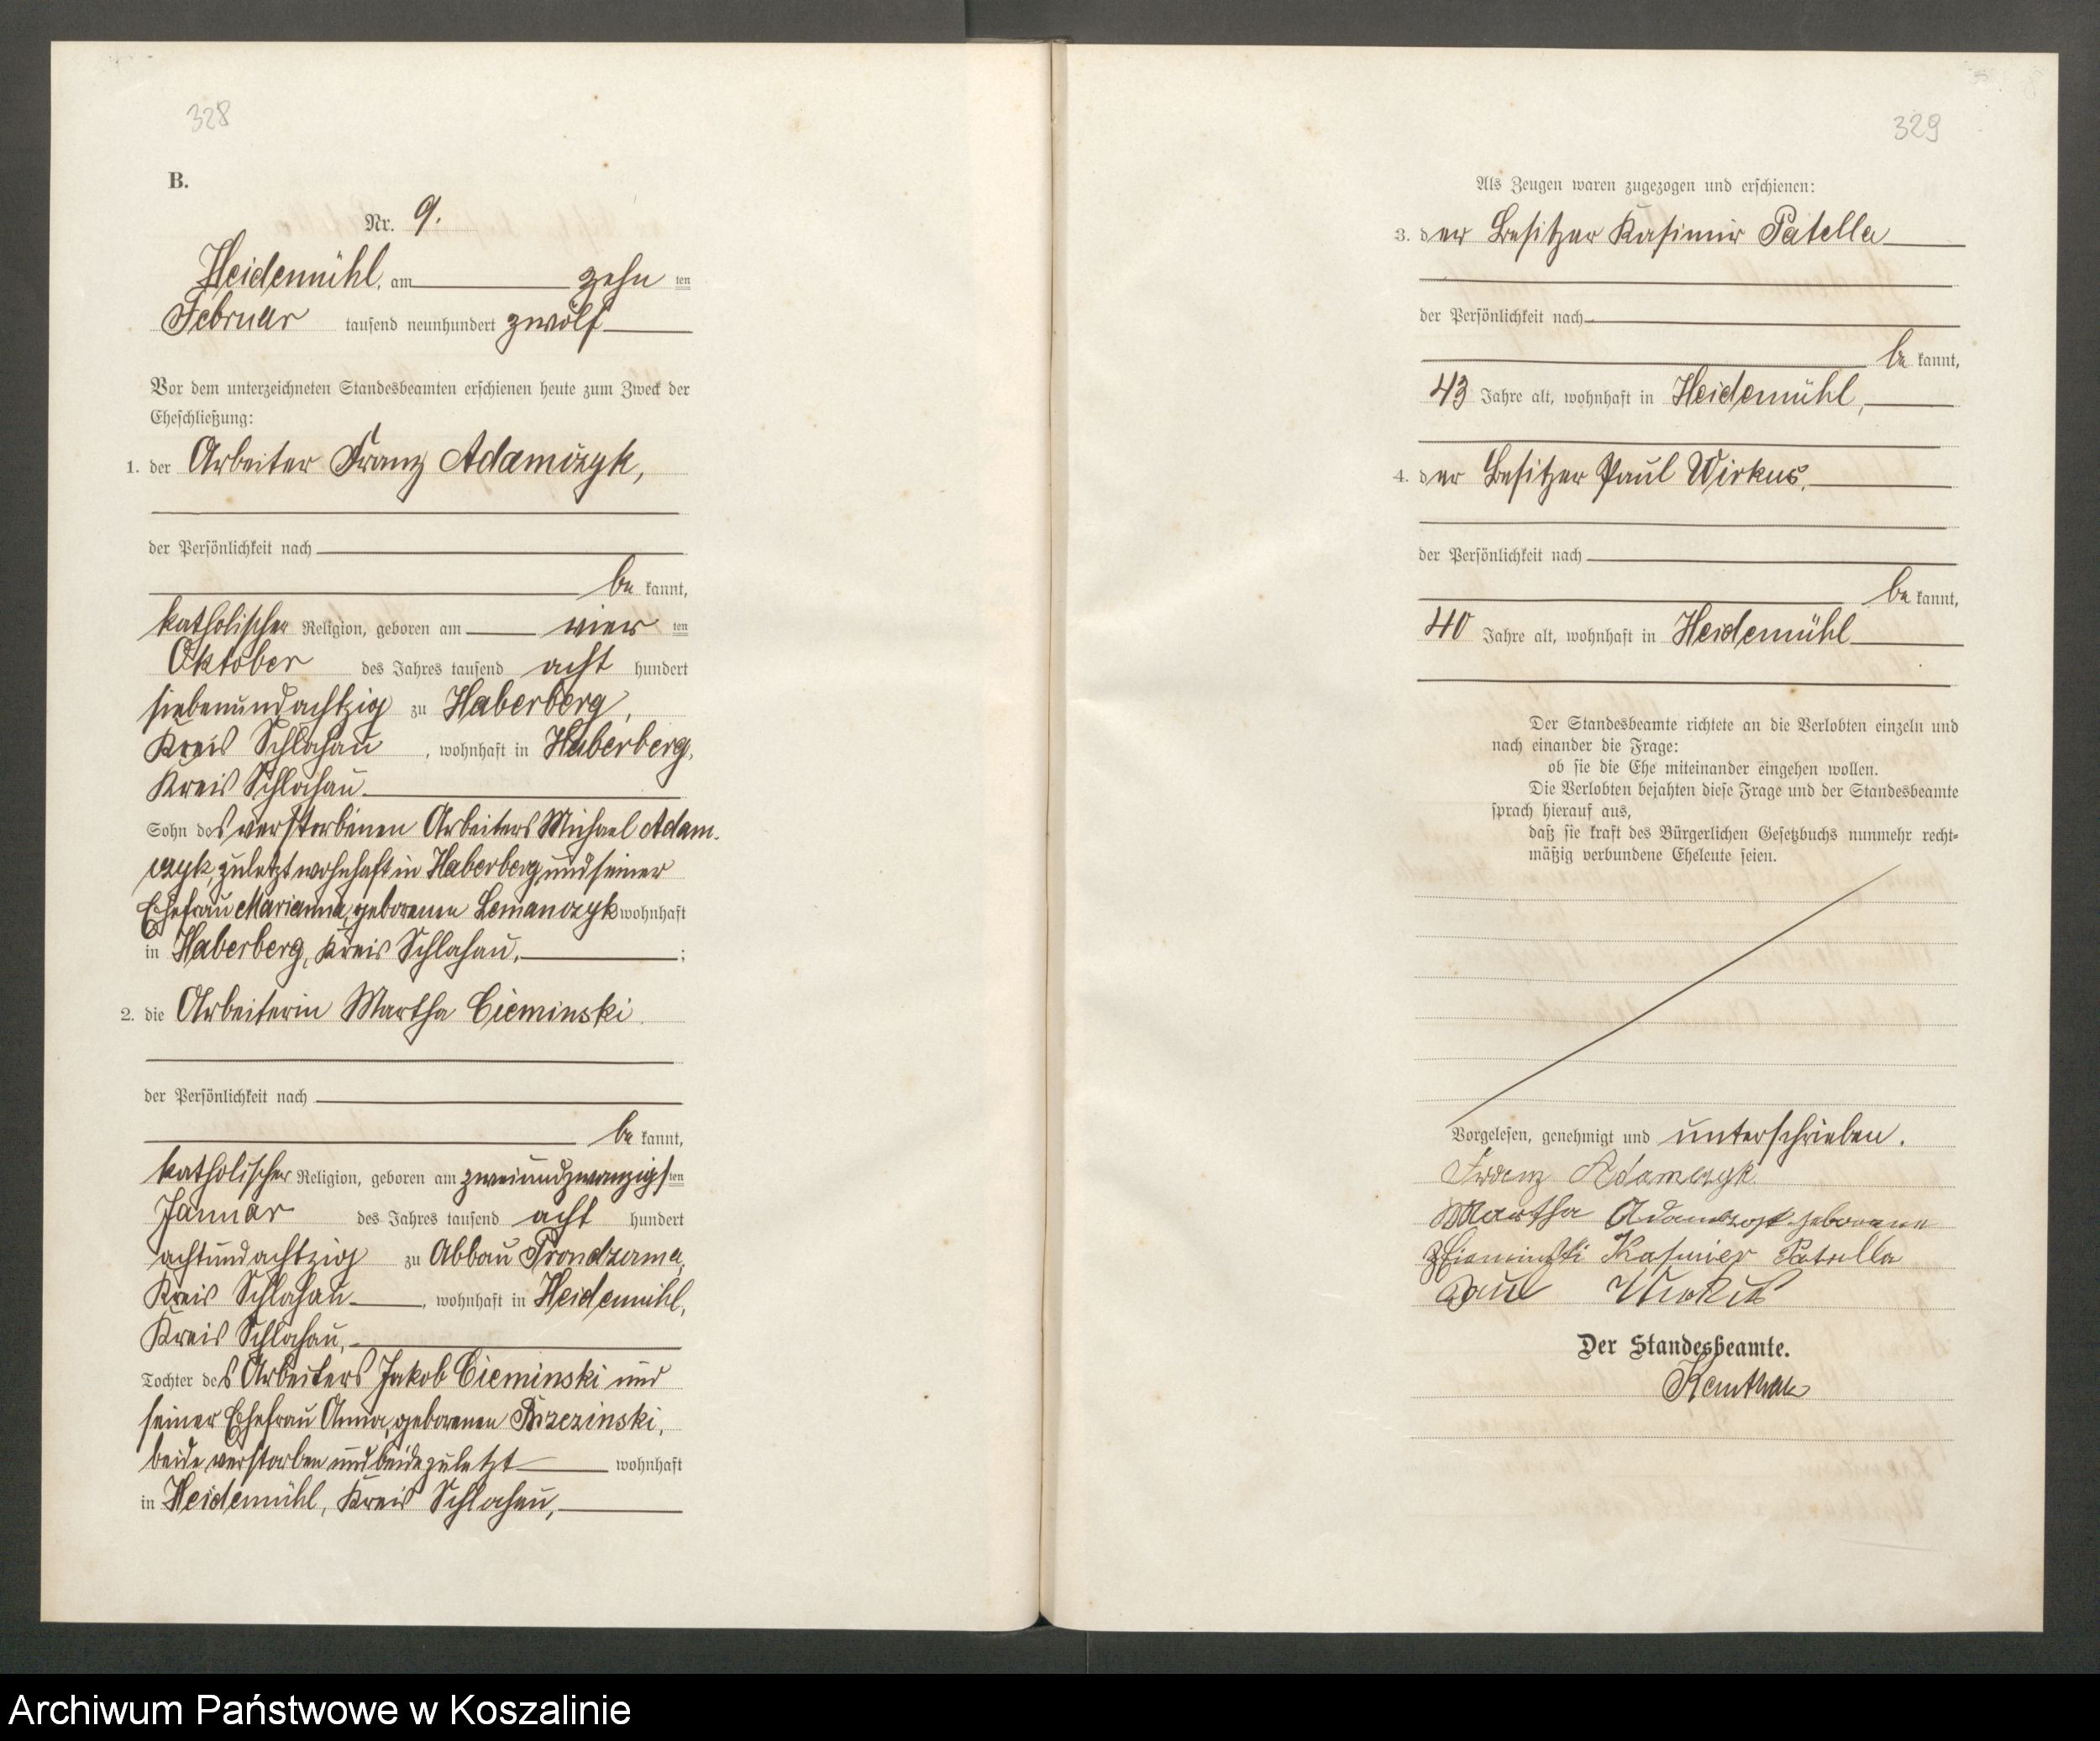 328
B.
Nr. 9.
Heidemühl, am zehn ten
Februar tausend neunhundert zwölf
Vor dem unterzeichneten Standesbeamten erschienen heute zum Zweck der
Eheschließung:
1. der Arbeiter Franz Adamczyk,
der Persönlichkeit nach
be kannt,
katholischer Religion, geboren am vier ten
Oktober des Jahres tausend acht hundert
siebenundachtzig zu Haberberg,
Kreis Schlochau, wohnhaft in Haberberg,
Kreis Schlochau.
Sohn des verstorbenen Arbeiters Michael Adam-
czyk, zuletzt wohnhaft in Haberberg und seiner
Ehefrau Marianna, geborenen Lemanczyk wohnhaft
in Haberberg, Kreis Schlochau, ;
2. die Arbeiterin Martha Cieminski
der Persönlichkeit nach
be kannt,
katholischer Religion, geboren am zweiundzwanzigsten
Januar des Jahres tausend acht hundert
achtundachtzig zu Abbau Prondzonna,
Kreis Schlochau, wohnhaft in Heidemühl,
Kreis Schlochau,
Tochter des Arbeiters Jakob Cieminski und
seiner Ehefrau Anna, geborenen Brzezinski,
beide verstorben und beide zuletzt wohnhaft
in Heidemühl, Kreis Schlochau,
329
Als Zeugen waren zugezogen und erschienen:
3. der Besitzer Kasimir Patella
der Persönlichkeit nach
be kannt,
43 Jahre alt, wohnhaft in Heidemühl,
4. der Besitzer Paul Wirkus,
der Persönlichkeit nach
be kannt,
40 Jahre alt, wohnhaft in Heidemühl
Der Standesbeamte richtete an die Verlobten einzeln und
nach einander die Frage:
ob sie die Ehe miteinander eingehen wollen.
Die Verlobten bejahten diese Frage und der Standesbeamte
sprach hierauf aus,
daß sie kraft des Bürgerlichen Gesetzbuchs nunmehr recht-
mäßig verbundene Eheleute seien.
Vorgelesen, genehmigt und unterschrieben.
Franz Adamczyk
Martha Adamczyk geborene
Kasimier Patella
Paul Wirkus
Der Standesbeamte.
Archiwum Państwowe w Koszalinie